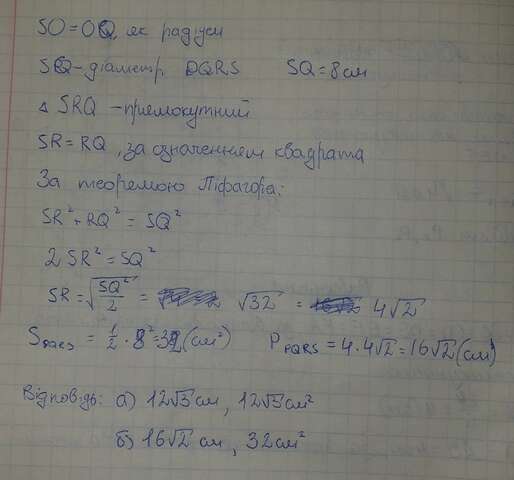 SO = OQ, як радіуси
SQ – діаметр PQRS SQ = 8 см
△ SRQ – прямокутний
SR = RQ, за означенням квадрата
За теоремою Піфагора:
SR² + RQ² = SQ²
2 SR² = SQ²
SR = √(SQ²/2) = √32 = 4√2
S_PQRS = 1/2 · 8² = 32 (см²) P_PQRS = 4 · 4√2 = 16√2 (см)
Відповідь: а) 12√3 см, 12√3 см²
б) 16√2 см, 32 см²